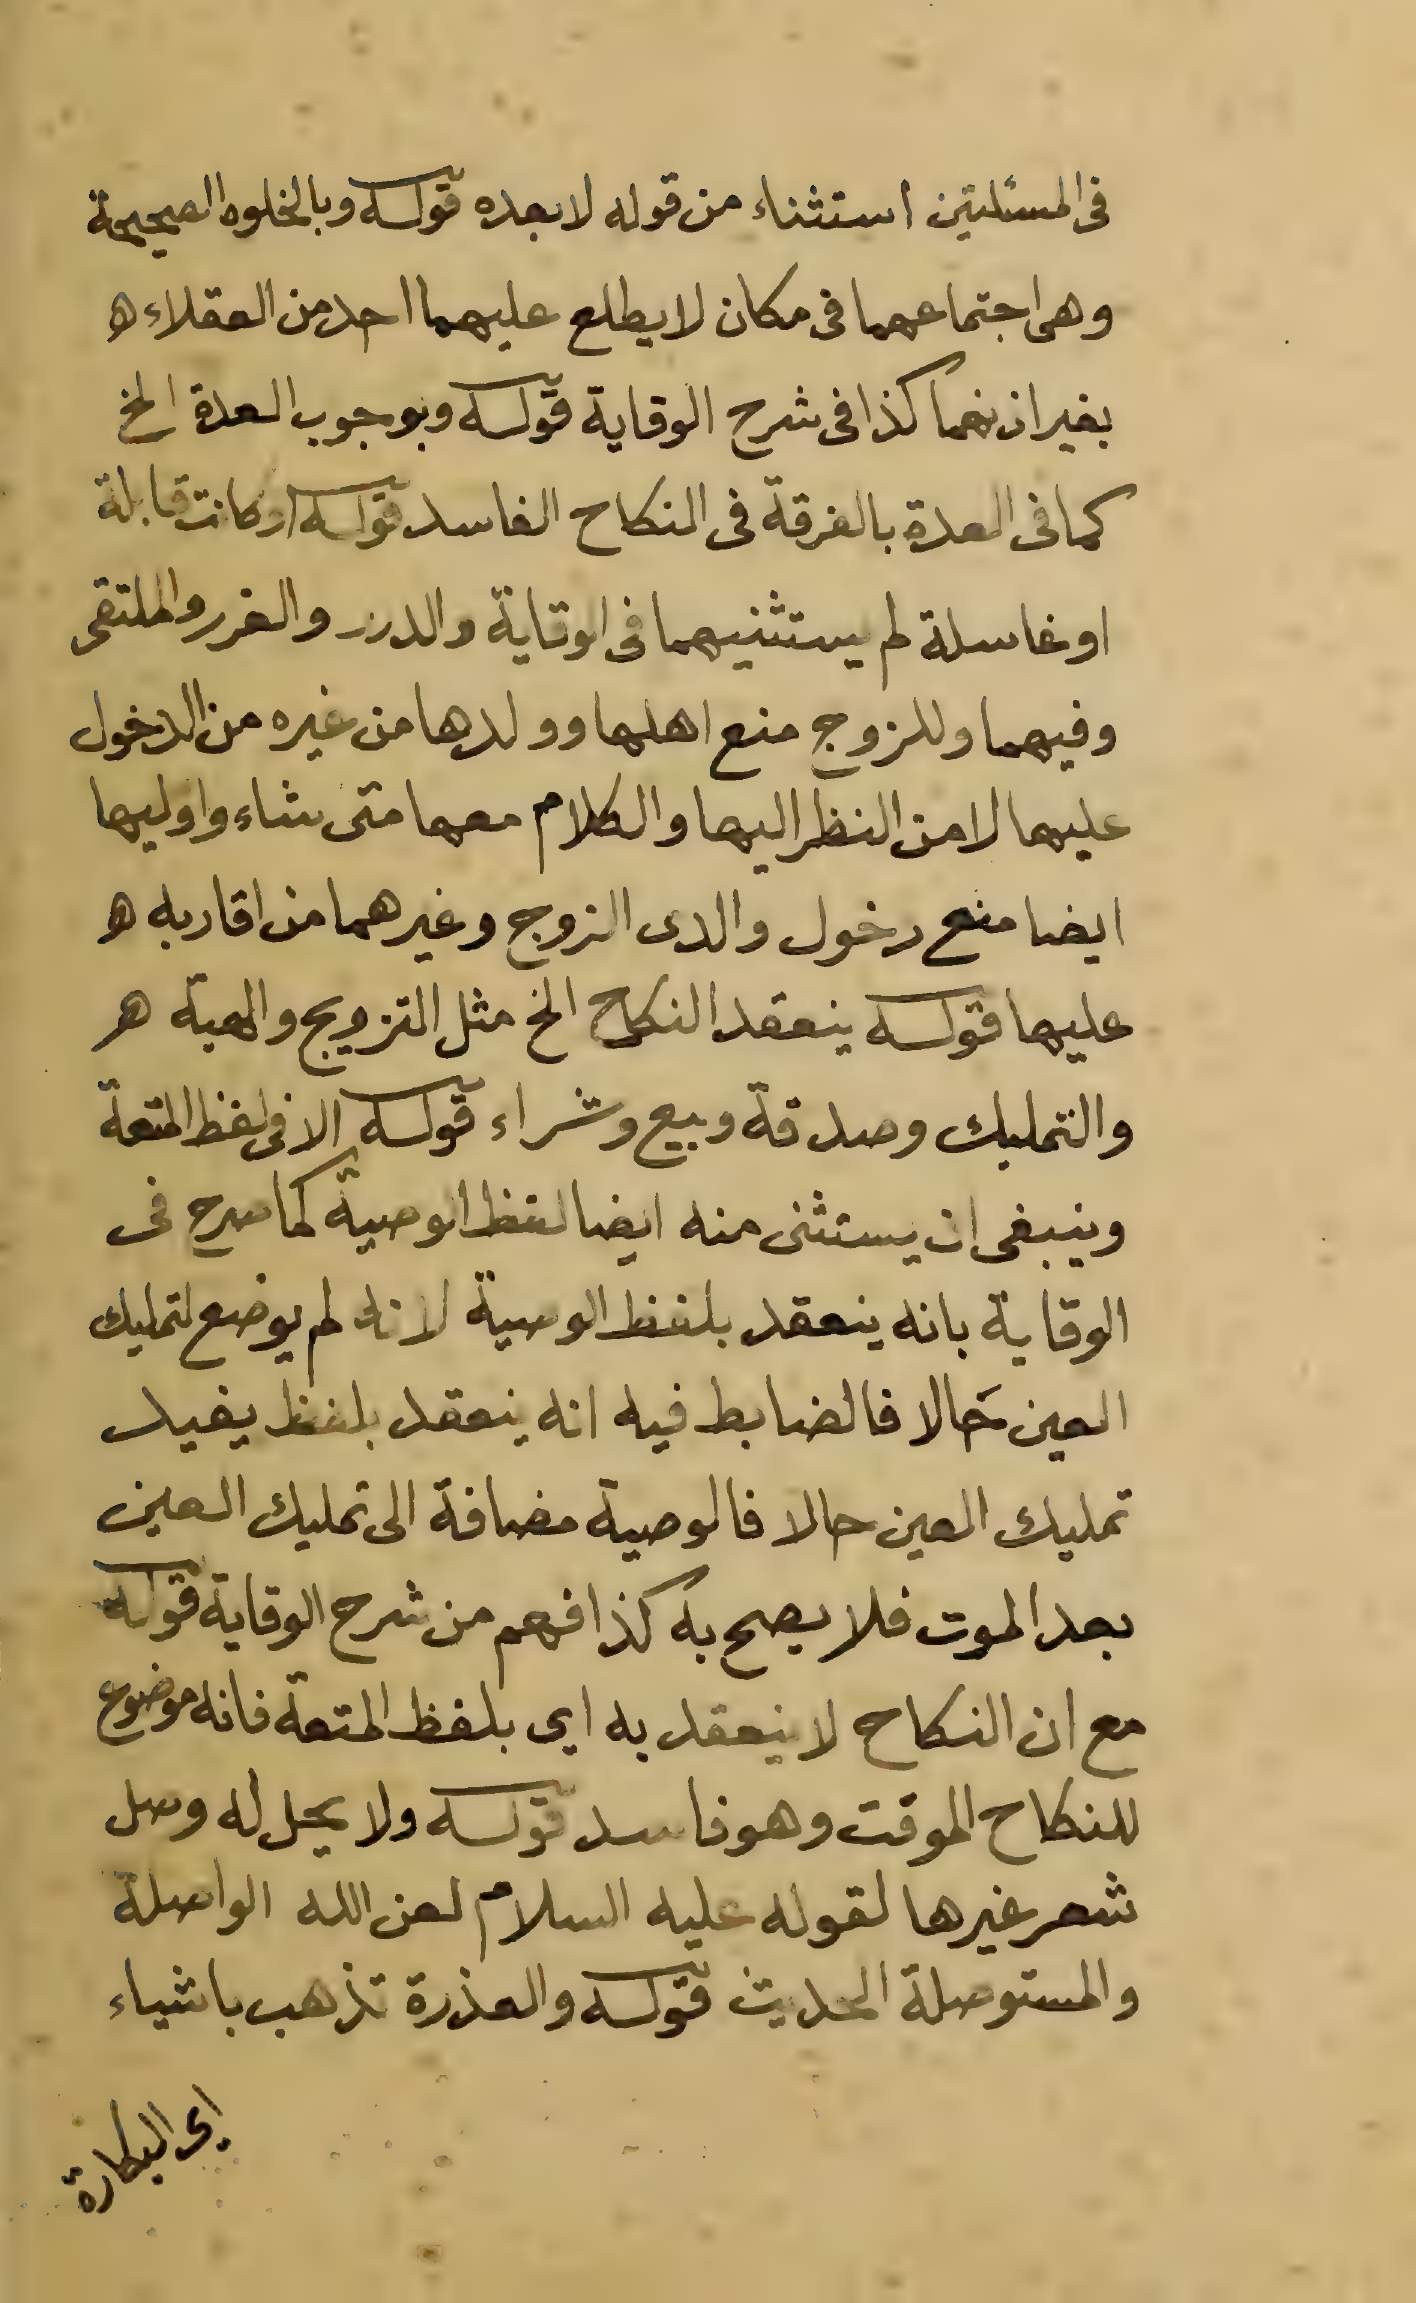 فى المسئلتين استثناء من قوله لا بعده قوله وبالخلوه الصحيحة
وهى اجتماعهما فى مكان لا يطلع عليهما احد من العقلاء ه
بغير اذنهما كذا فى شرح الوقاية قوله وبوجوب العدة الخ
كما فى العدة بالفرقة فى النكاح الفاسد قوله او كانت قابلة
او غاسلة لم يستثنيهما فى الوقاية والدرر والغرر والملتقى
وفيهما وللزوج منع اهلها وولدها من غيره من الدخول
عليها لا من النظر اليها والكلام معها متى شاء واوليها
ايضا منع دخول والدى الزوج وغيرهما من اقاربه ه
عليها قوله ينعقد النكاح الخ مثل التزويج والهبة هر
والتمليك وصدقة وبيع وشراء قوله الا فى لفظ المتعة
وينبغى ان يستثنى منه ايضا لفظ الوصية كما صرح فى
الوقاية بانه ينعقد بلفظ الوصية لانه لم يوضع لتمليك
العين حَالا فالضابط فيه انه ينعقد بلفظ يفيد
تمليك العين حالا فالوصية مضافة الى تمليك العين
بعد الموت فلا يصح به كذا فهم من شرح الوقاية قوله
مع ان النكاح لا ينعقد به اى بلفظ المتعة فانه موضوع
للنكاح الموقت وهو فاسد قوله ولا يحل له وصل
شعر غيرها لقوله عليه السلام لعن الله الواصلة
والمستوصلة الحديث قوله والعذرة تذهب باشياء
اى البكارة